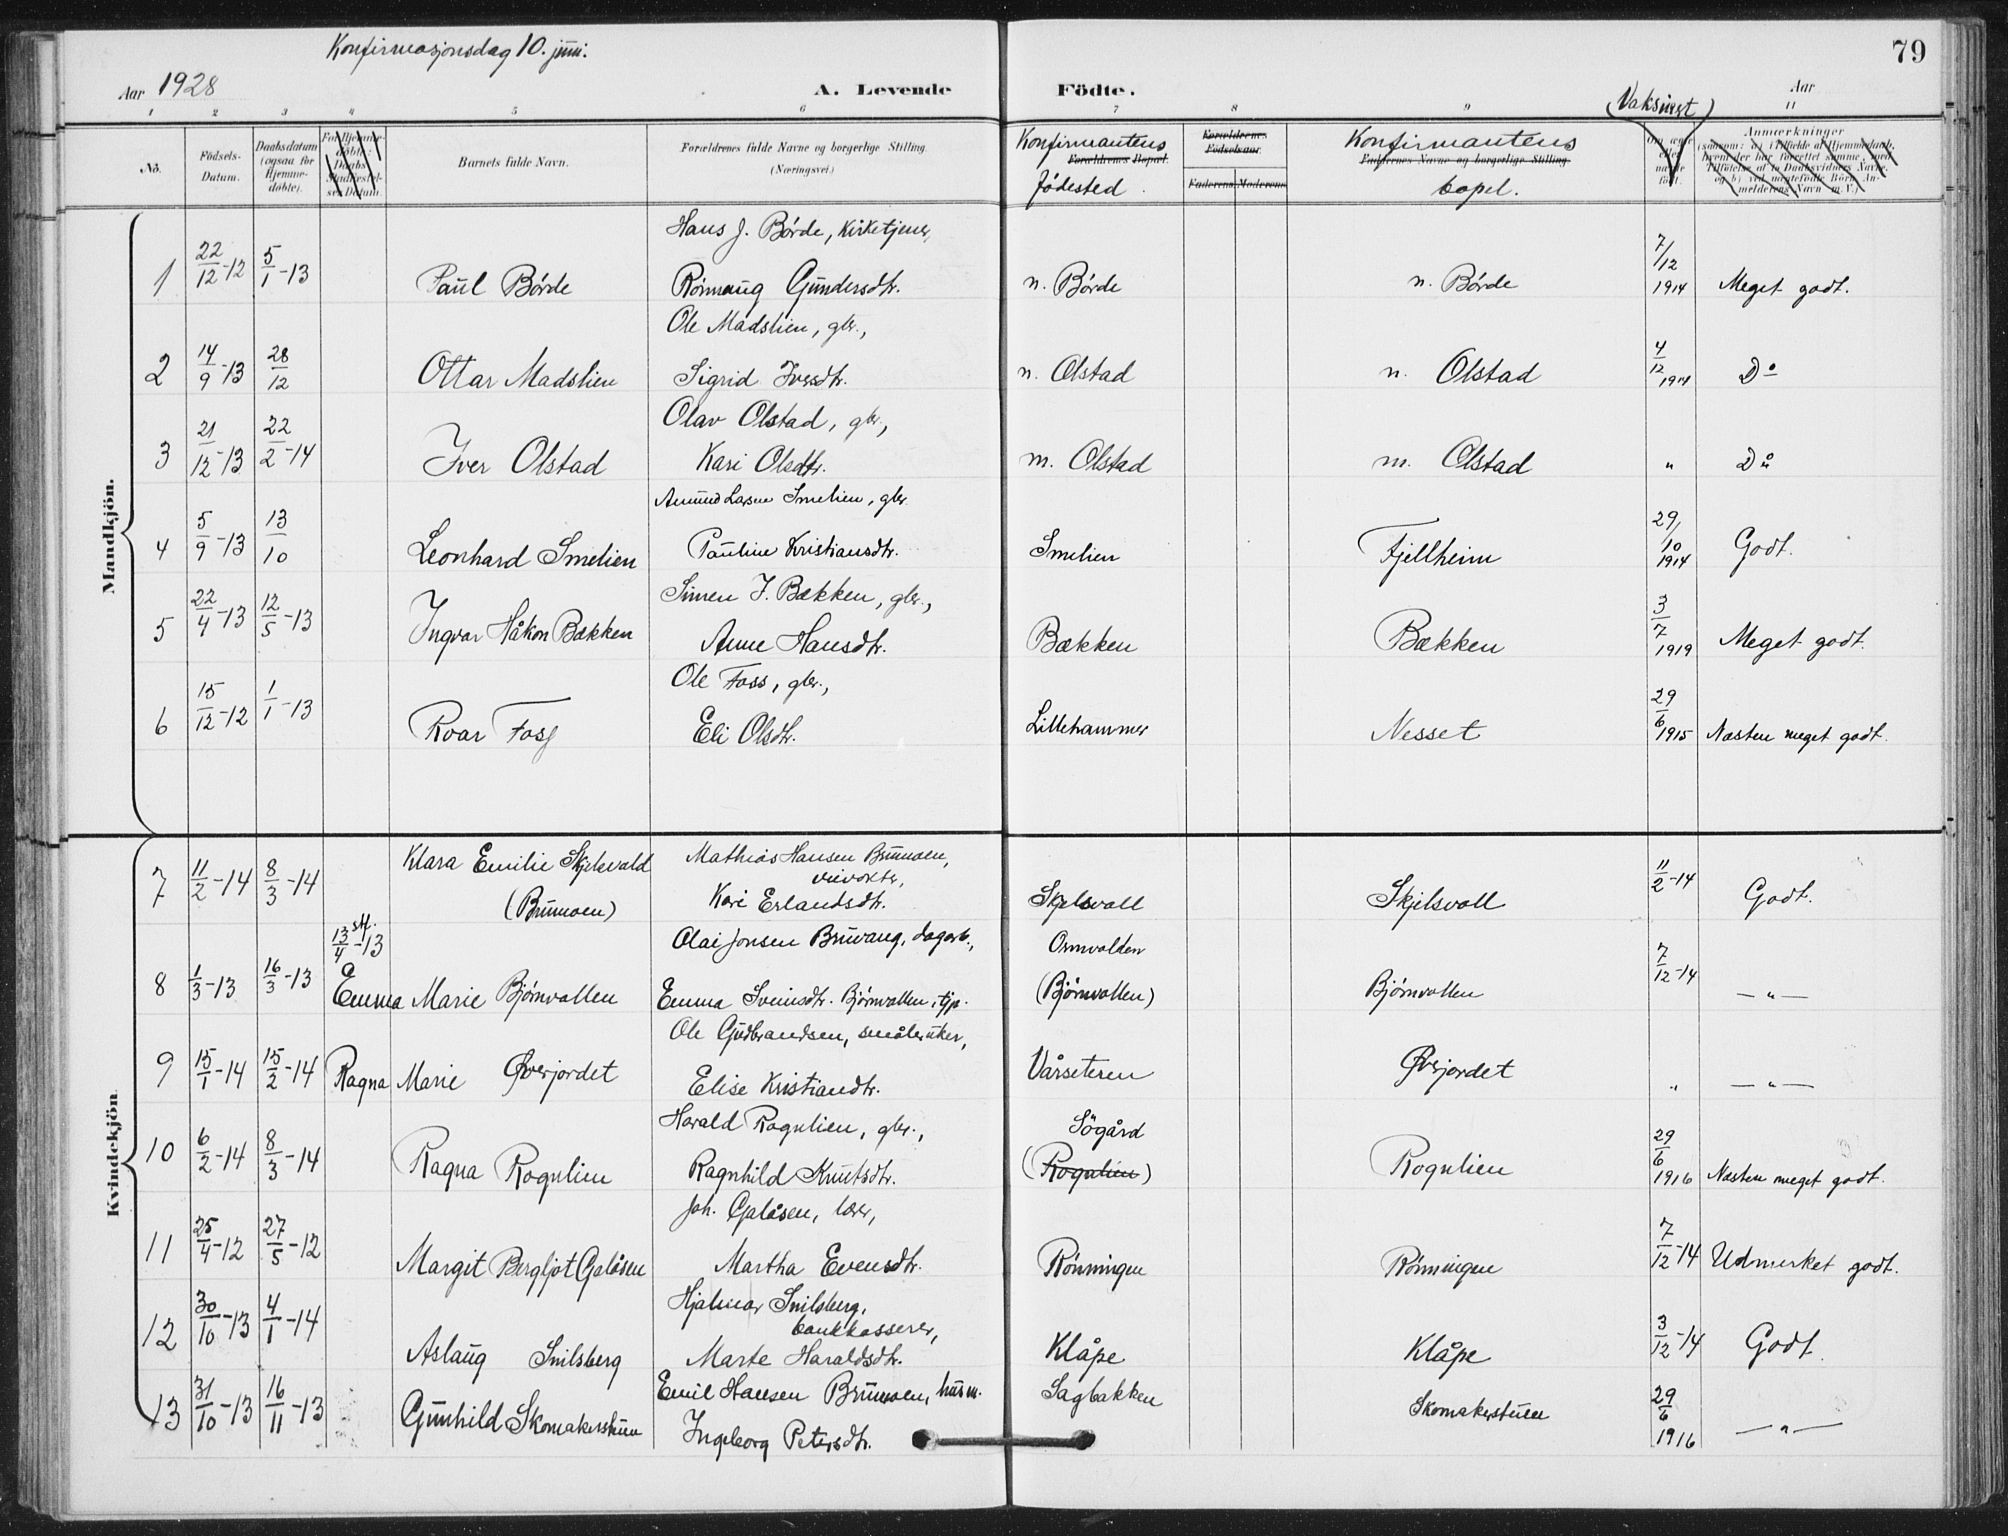 Konfirmasjonsdag 10. juni.
79
Aar 1928
A. Levende Födte.
(Vaksinert)
Aar
1 2 3 4 5 6 7 8 9 11
No.
Födsels-Datum.
Daabsdatum (ogsaa for Hjemme-döbte).
Barnets fulde Navn.
Forældrenes fulde Navne og borgerlige Stilling (Næringsvei.)
Konfirmantens Forældrenes Bopæl. fødested.
Forældrenes Födselsaar. Faderens. Moderens.
Konfirmantens Faddernes Navne og borgerlige Stilling bopel.
Om ægte eller uægte født.
Anmærkninger
Mandkjön.
Hans J. Børde, Kirketjener,
1 22/12-12 5/1-13 Paul Børde Rønnaug Gundersdtr. n. Børde n. Børde 7/12 1914 Meget godt.
Ole Madslien, gbr.,
2 14/9-13 28/12 Ottar Madslien Sigrid Iversdtr. n. Olstad n. Olstad 4/12 1914 Do
Olav Olstad, gbr.,
3 21/12-13 22/2-14 Iver Olstad Kari Olsdtr. m. Olstad m. Olstad " Do
Amund Larsen Smelien, gbr.
4 5/9-13 13/10 Leonhard Smelien Pauline Kristiansdtr. Smelien Fjellheim 29/10 1914 Godt.
Simen J. Bækken, gbr.,
5 22/4-13 12/5-13 Ingvar Håkon Bækken Anne Hansdtr. Bækken Bækken 3/7 1919 Meget godt.
Ole Foss, gbr.,
6 15/12-12 1/1-13 Roar Foss Eli Olsdtr. Lillehammer Nesset 29/6 1915 Næsten meget godt.
Kvindekjön.
Klara Emilie Skjelsvold Mathias Hansen Brumoen,
veivokter,
7 11/2-14 8/3-14 (Brumoen) Kari Erlandsdtr. Skjelsvoll Skjelsvoll 11/2-14 Godt.
stf. 13/4-13 Olai Jonsen Bruvang, dagarb., Ormvolden
8 1/3-13 16/3-13 Emma Marie Bjørnvollen Emma Svendsdtr. Bjørnvollen, tjp. (Bjørnvollen) Bjørnvollen 7/12-14 — " —
Ole Gudbrandsen, småbruker,
9 15/1-14 15/2-14 Ragna Marie Øverjordet Elise Kristiandtr. Vårseteren Øverjordet " — " —
Harald Rognlien, gbr., Sögård
10 6/2-14 8/3-14 Ragna Rognlien Ragnhild Knutsdtr. (Rognlien) Rognlien 29/6 1916 Næsten meget godt.
Joh. Galåsen, lærer,
11 25/4-12 27/5-12 Margit Bergljot Galåsen Martha Evensdtr. Rønningen Rønningen 7/12-14 Udmerket godt.
Hjalmar Snilsberg,
bankkasserer,
12 30/10-13 4/1-14 Aslaug Snilsberg Marte Haraldsdtr. Klåpe Klåpe 3/12-14 Godt.
Emil Hansen Brumoen, husm. Sagbakken
13 31/10-13 16/11-13 Gunhild Skomakerstuen Ingeborg Petersdtr. Skomakerstuen 29/6 1916 — " —